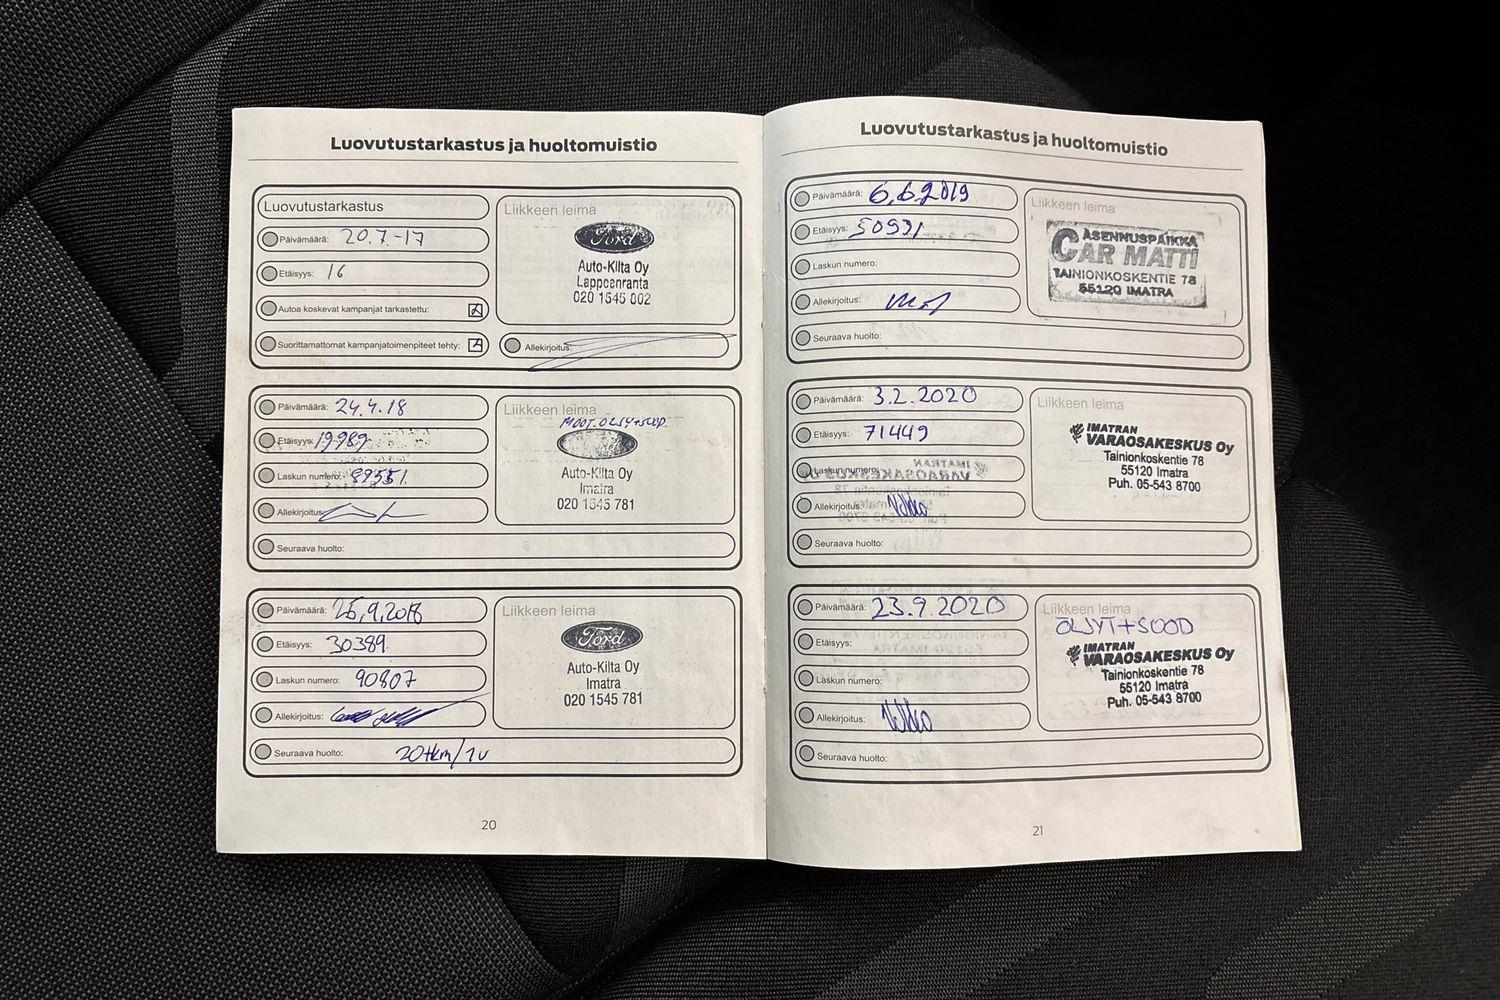 Luovutustarkastus ja huoltomuistio
Luovutustarkastus
Päivämäärä: 20.7-17
Etäisyys: 16
Autoa koskevat kampanjat tarkastettu:
Suorittamattomat kampanjatoimenpiteet tehty:
Liikkeen leima
Ford
Auto-Kilta Oy
Lappeenranta
020 1545 002
Allekirjoitus:
Päivämäärä: 24.4.18
Etäisyys: 19989
Laskun numero: 89551
Allekirjoitus:
Seuraava huolto:
Liikkeen leima
MOOT. ÖLJY+SUOD.
Auto-Kilta Oy
Imatra
020 1545 781
Päivämäärä: 25.9.2018
Etäisyys: 30389
Laskun numero: 90807
Allekirjoitus:
Seuraava huolto: 20tkm/1v
Liikkeen leima
Ford
Auto-Kilta Oy
Imatra
020 1545 781
20
Luovutustarkastus ja huoltomuistio
Päivämäärä: 6.6.2019
Etäisyys: 50931
Laskun numero:
Allekirjoitus:
Seuraava huolto:
Liikkeen leima
ASENNUSPAIKKA
CAR MATTI
TAINIONKOSKENTIE 78
55120 IMATRA
Päivämäärä: 3.2.2020
Etäisyys: 71449
Laskun numero:
Allekirjoitus:
Seuraava huolto:
Liikkeen leima
IMATRAN
VARAOSAKESKUS Oy
Tainionkoskentie 78
55120 Imatra
Puh. 05-543 8700
Päivämäärä: 23.9.2020
Etäisyys:
Laskun numero:
Allekirjoitus:
Seuraava huolto:
Liikkeen leima
ÖLJYT+SUOD
IMATRAN
VARAOSAKESKUS Oy
Tainionkoskentie 78
55120 Imatra
Puh. 05-543 8700
21